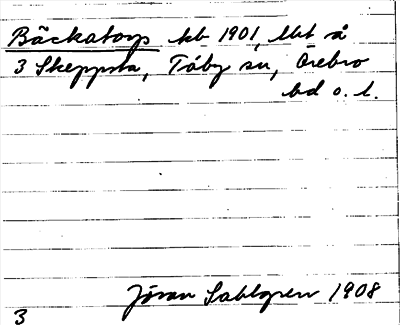 Bäckatorp kb 1901, lht å
3 Skeppsta, Täby sn, Örebro
hd o. l.
Jöran Sahlgren 1908
3